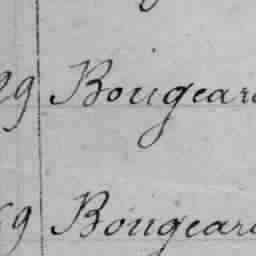 29 Bougear
69 Bougear